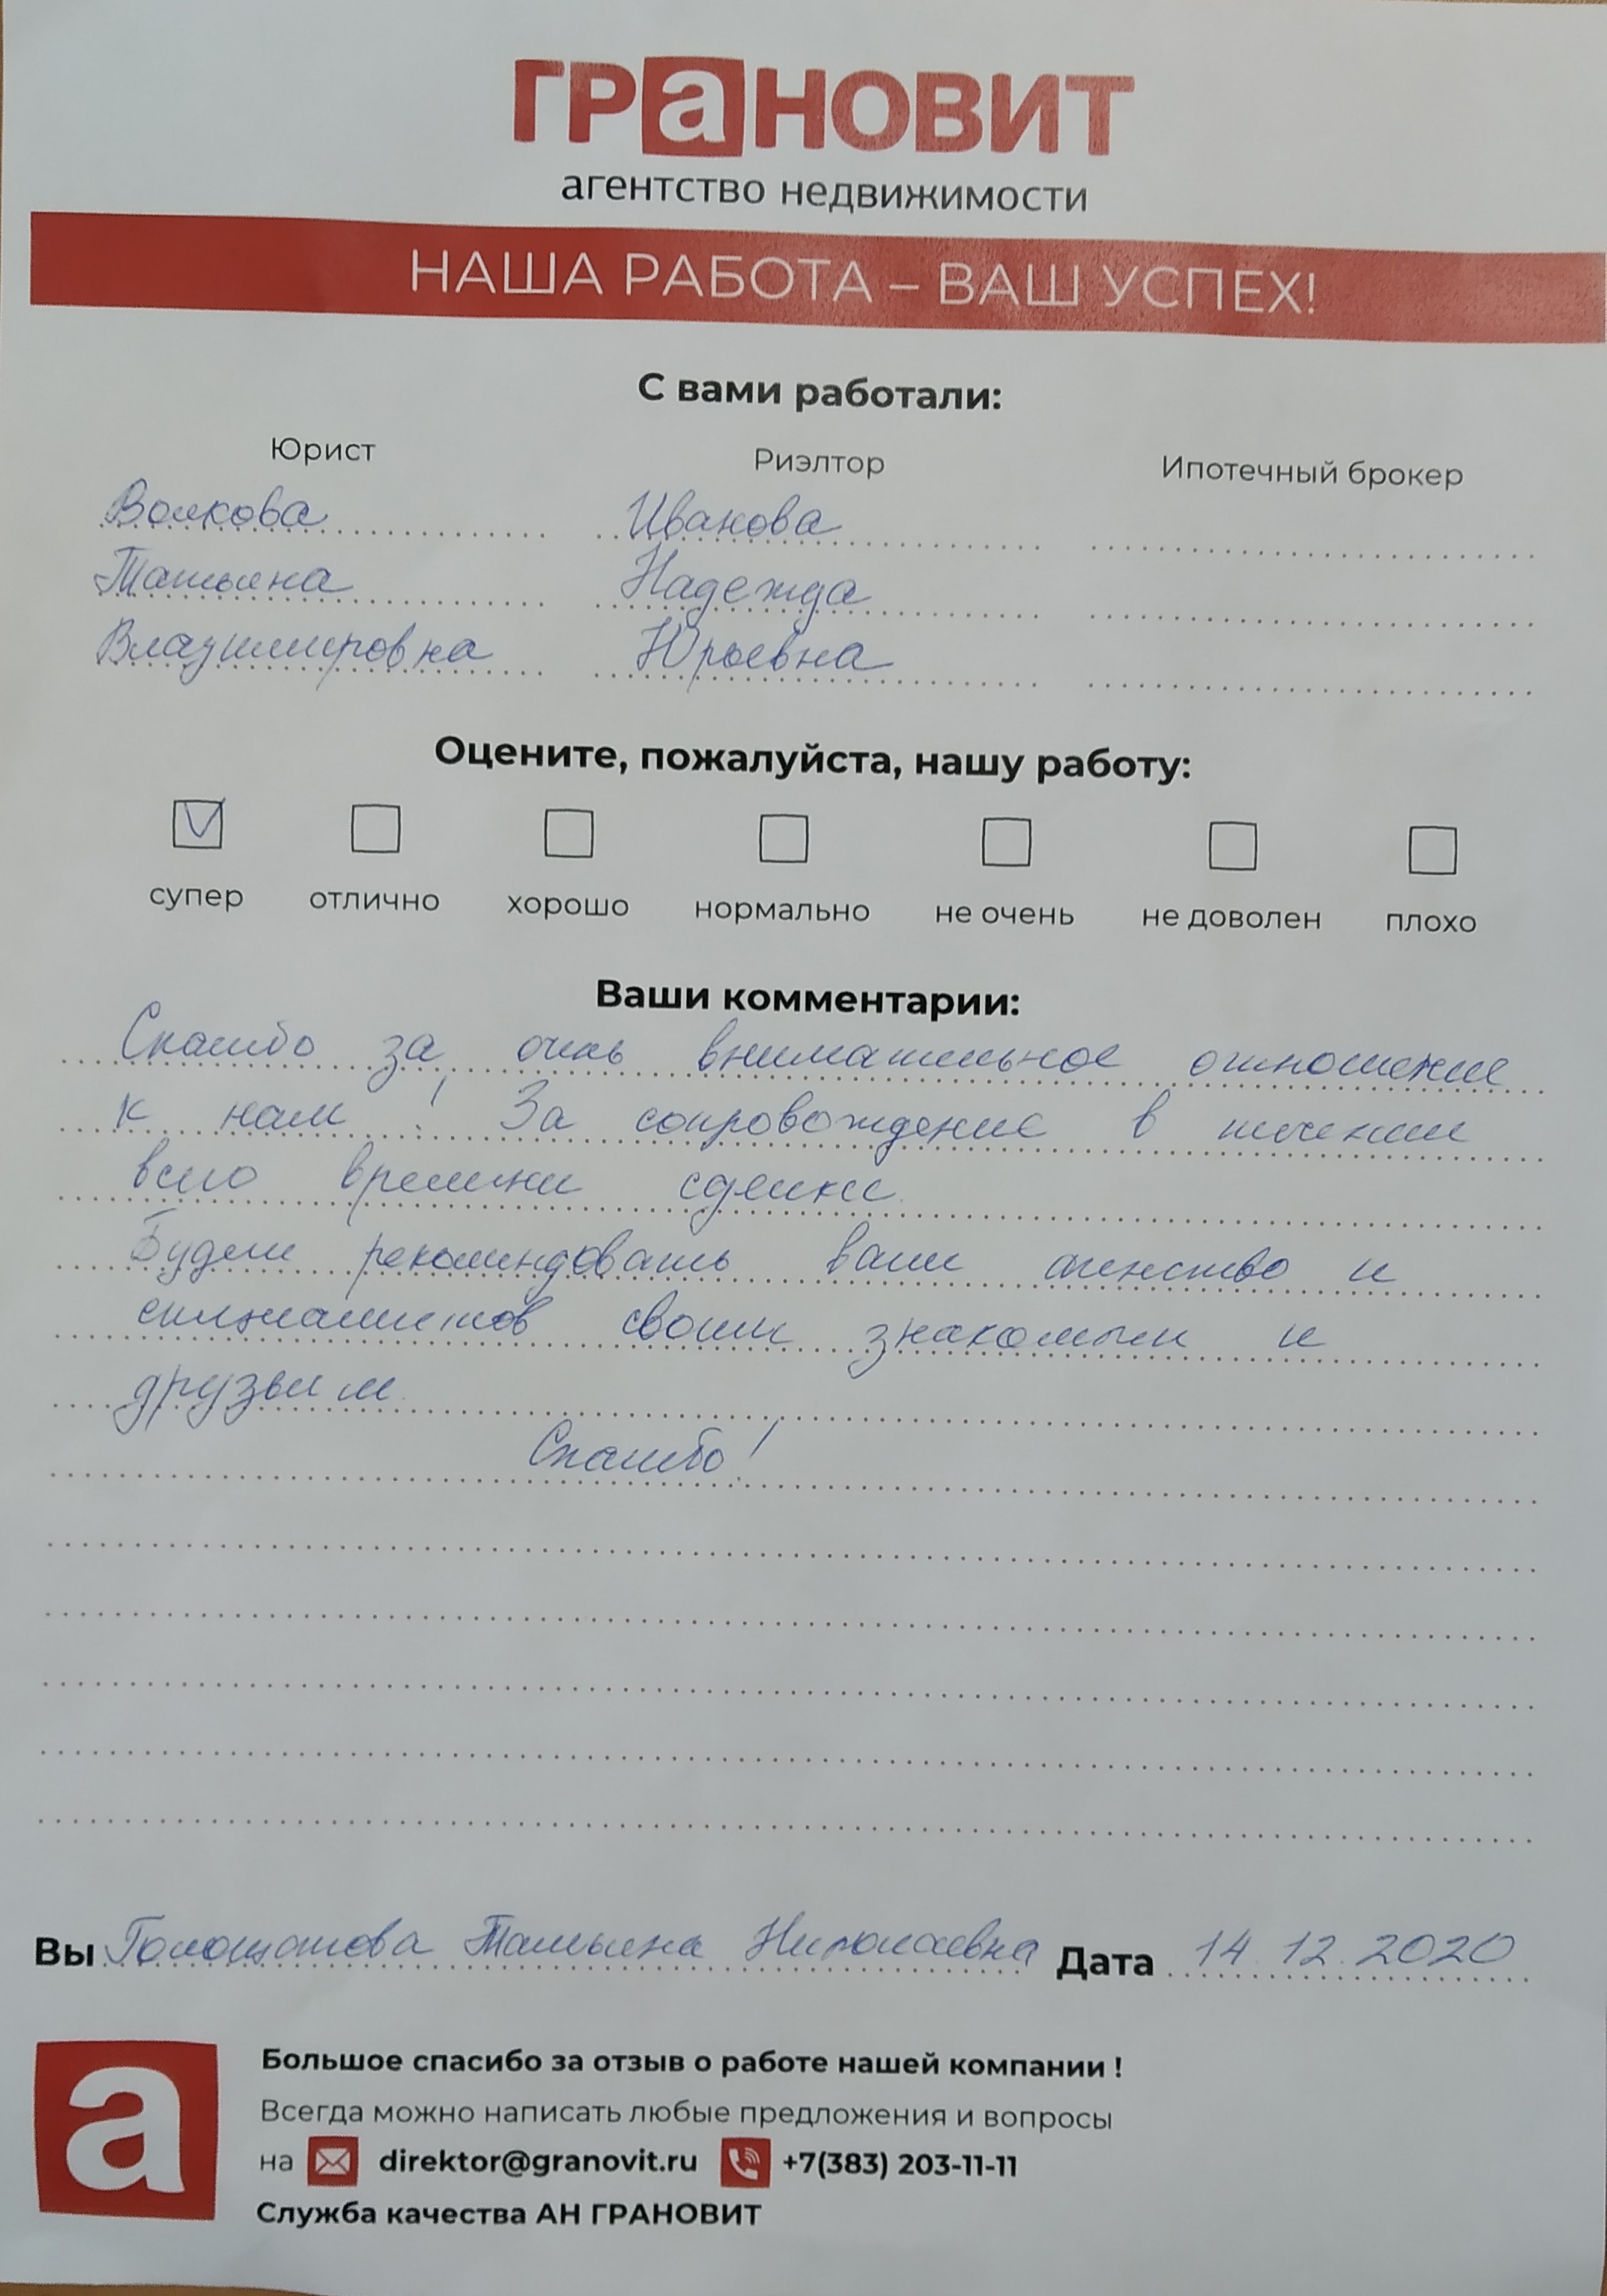 ГРаНОВИТ
агентство недвижимости
НАША РАБОТА – ВАШ УСПЕХ!
С вами работали:
Юрист Риэлтор Ипотечный брокер
Волкова Иванова
Татьяна Надежда
Владимировна Юрьевна
Оцените, пожалуйста, нашу работу:
супер отлично хорошо нормально не очень не доволен плохо
Ваши комментарии:
Спасибо за очень внимательное отношение
к нам! За сопровождение в течении
всего времени сделки.
Будем рекомендовать ваше агенство и
специалистов своим знакомым и
друзьям.
Спасибо!
Вы Татьяна Николаевна Дата 14.12.2020
а
Большое спасибо за отзыв о работе нашей компании !
Всегда можно написать любые предложения и вопросы
на direktor@granovit.ru +7(383) 203-11-11
Служба качества АН ГРАНОВИТ